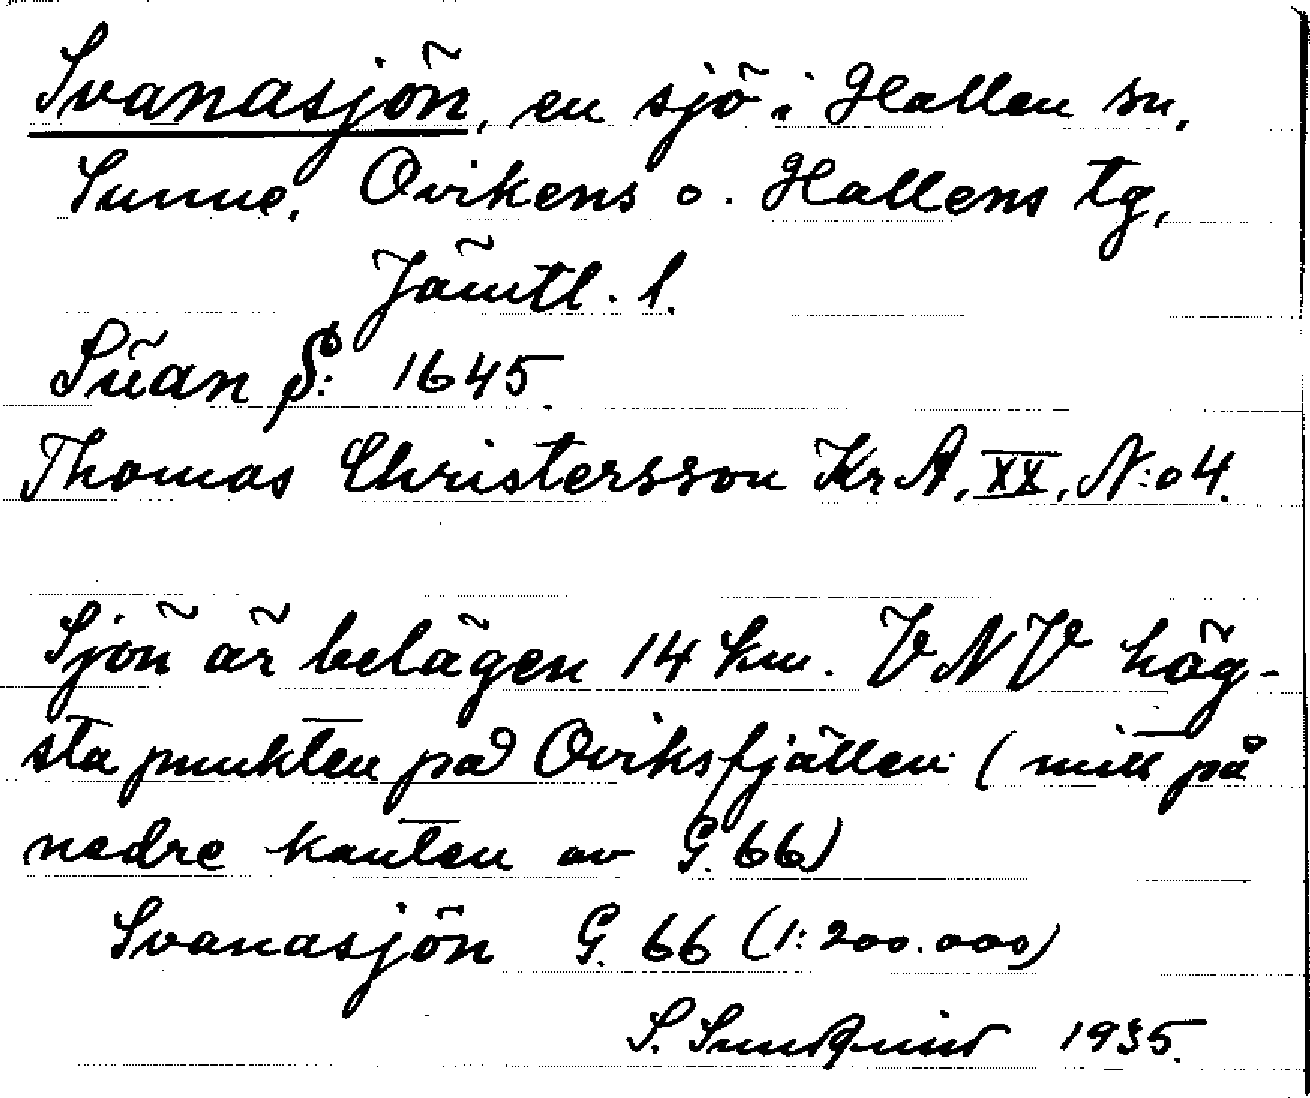 Svanasjön, en sjö i Hallen sn,
Sunne, Ovikens o. Hallens tg,
Jämtl. l.
Süan S: 1645.
Thomas Christersson Kr A, XX, N:o 4.
Sjön är belägen 14 km. VNV hög-
sta punkten på Oviksfjällen (mitt på
nedre kanten av G. 66)
Svanasjön G. 66 (1:200.000)
S. Sundquist 1935.